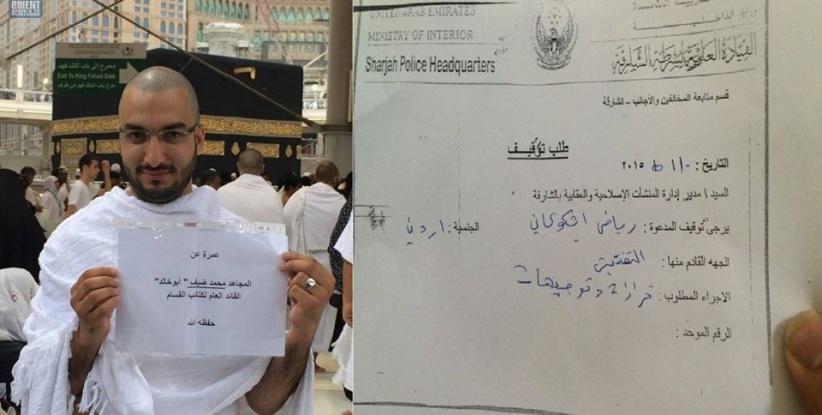 ORIENT
مخرج إلى باب الملك فهد
Exit To King Fahad Gate
عمرة عن
المجاهد محمد ضيف " أبو خالد"
القائد العام لكتائب القسام
حفظه الله
UNITED ARAB EMIRATES
MINISTRY OF INTERIOR
Sharjah Police Headquarters
القيادة العامة لشرطة الشارقة
قسم متابعة المخالفين والأجانب – الشارقة
طلب توقيف
التاريخ: ٢٠١٥
السيد / مدير إدارة المنشآت الإصلاحية والعقابية بالشارقة
يرجى توقيف المدعوة: رياض الجنسية:
الجهه القادم منها:
الاجراء المطلوب:
الرقم الموحد: